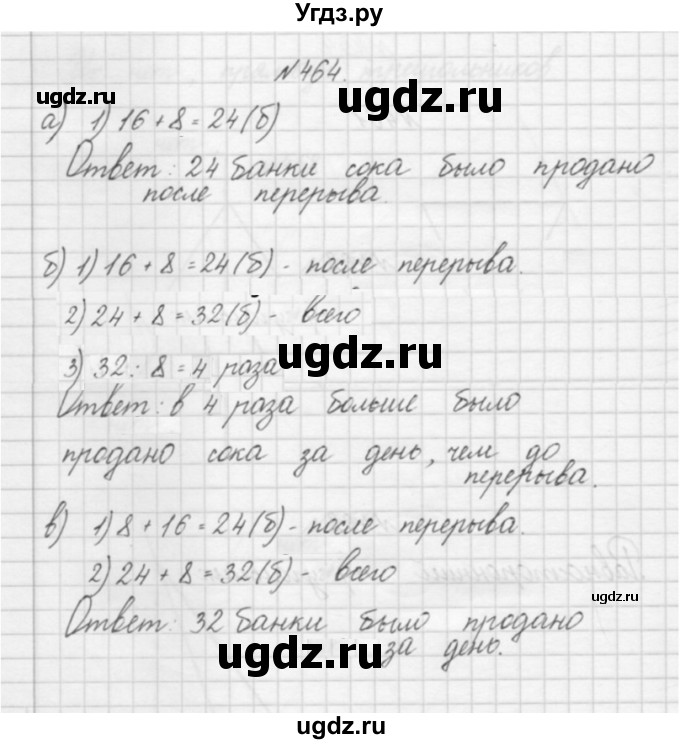 Угдз.ру
№464.
ugdz.ru
а) 1) 16 + 8 = 24 (б)
Ответ: 24 банки сока было продано
после перерыва.
б) 1) 16 + 8 = 24 (б) - после перерыва.
2) 24 + 8 = 32 (б) - всего
ugdz.ru
3) 32 : 8 = 4 раза
Ответ: в 4 раза больше было
продано сока за день, чем до
перерыва.
в) 1) 8 + 16 = 24 (б) - после перерыва.
2) 24 + 8 = 32 (б) - всего
ugdz.ru
Ответ: 32 банки было продано
ugdz.ru
за день.
ugdz.ru